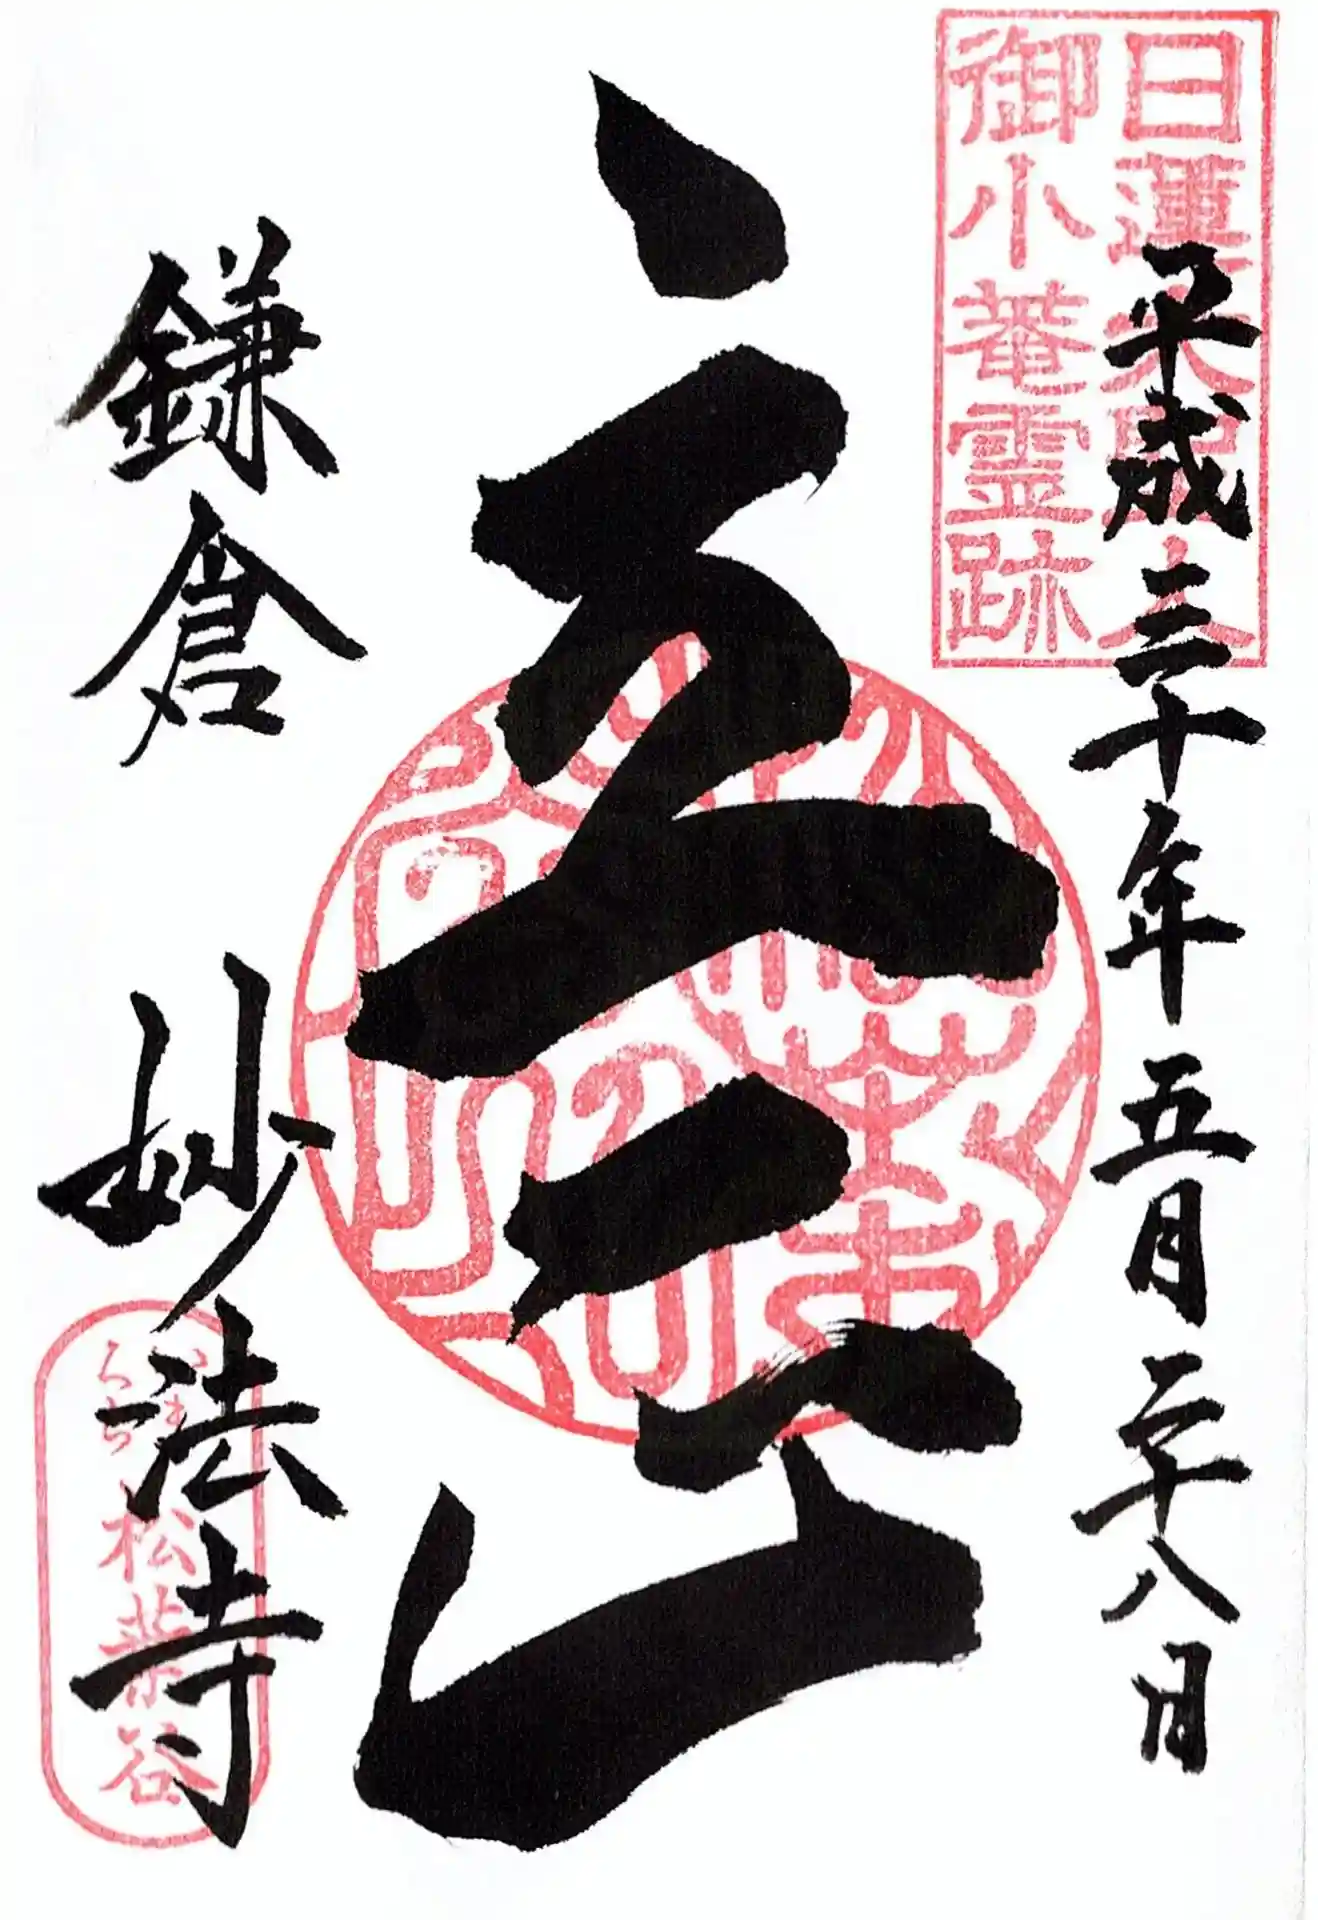 日蓮大聖人
御小菴霊跡
平成三十年五月二十八日
立正
鎌倉 妙法寺
松葉谷